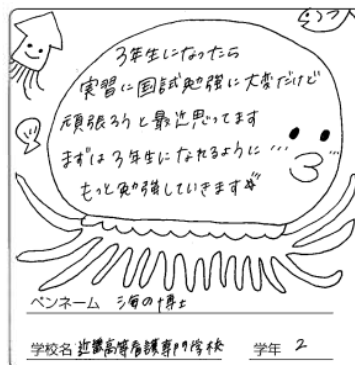 3年生になったら
実習に国試勉強に大変だけど
頑張ろうと最近思ってます
まずは3年生になれるように…
もっと勉強していきます
ペンネーム 海の博士
学校名 近畿高等看護専門学校 学年 2